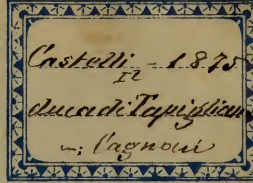 Castelli - 1875
Il
duca di Tapigliano
m: Cagnoni